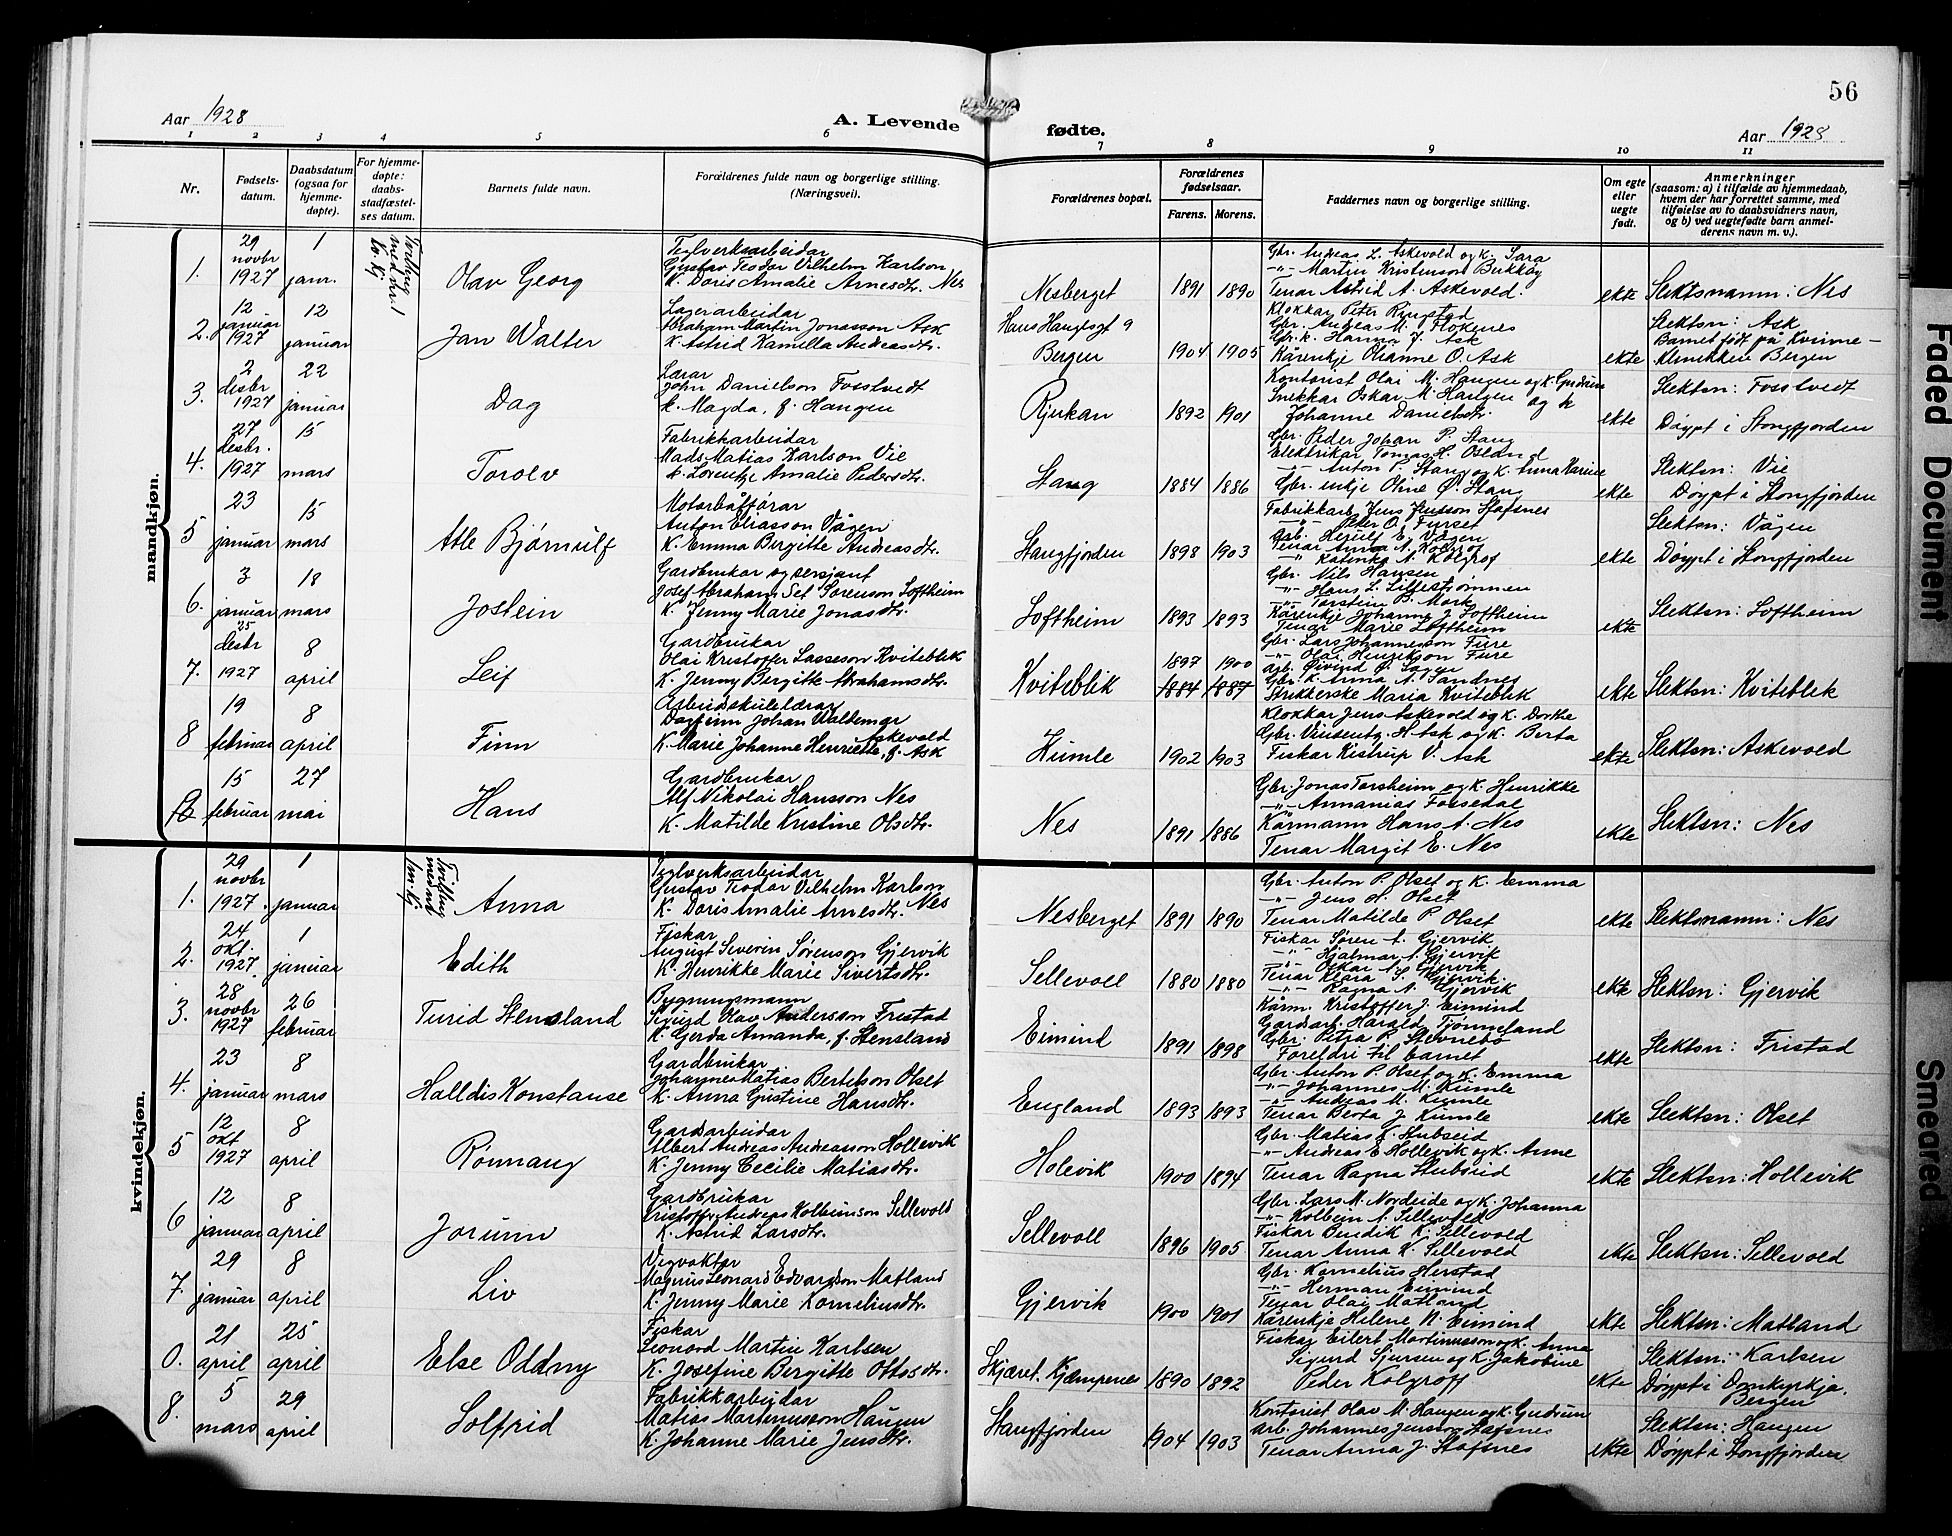 56
Aar 1928
A. Levende
fødte.
Aar 1928
1 2 3 4 5 6 7 8 9 10 11
Nr.
Fødsels-
datum.
Daabsdatum
(ogsaa for
hjemme-
døpte).
For hjemme-
døpte:
daabs-
stadfæstel-
ses datum.
Barnets fulde navn.
Forældrenes fulde navn og borgerlige stilling.
(Næringsvei).
Forældrenes bopæl.
Forældrenes
fødselsaar.
Farens. Morens.
Faddernes navn og borgerlige stilling.
Om egte
eller
uegte
født.
Anmerkninger
(saasom: a) i tilfælde av hjemmedaab,
hvem der har forrettet samme, med
tilføielse av to daabsvidners navn,
og b) ved uegtefødte barn anmel-
derens navn m. v.).
mandkjøn.
1.
29
novbr
1927
1
janr.
Tvilling
med nr. 1
kv. kj
Olav Georg
Teglverksarbeidar
Gustav Teodor Vilhelm Karlson
K. Doris Amalie Arnesdtr. Nes
Nesberget
1891 1890
Gbr. Andreas L. Askevold og K. Sara
-"- Martin Kristenson Bukkøy
Tenar Astrid A. Askevold.
ekte
Slektsnamn: Nes
2.
12
januar
1927
12
januar
Jan Walter
Lagerarbeidar
Abraham Martin Jonasson Ask
K. Astrid Kamilla Andreasdtr.
Hans Haugesgt 9
Bergen
1904 1905
Klokkar Peter Ringstad
Gbr. Andreas M. Flokenes
Gbr. k. Hanna J. Ask
Kårenkje Ohanne O. Ask
ekte
Slektsn: Ask
Barnet født på Kvinne-
klinikken Bergen
3.
2
desbr
1927
22
januar
Dag
Lærar
John Danielson Fosstvedt
k. Magda, f. Haugen
Rjukan
1892 1901
Kontorist Olai M. Haugen og k. Gudrun
Snikkar Oskar M. Haugen og k
Johanne Danielsdtr.
ekte
Slektsn: Fosstvedt
Døypt i Stongfjorden
4.
27
desbr.
1927
15
mars
Torolv
Fabrikkarbeidar
Mads Matias Karlson Vie
k. Lorentze Amalie Pedersdtr.
Stang
1884 1886
Gbr. Peder Johan P. Stang
Elektrikar Tomas H. Osland
-"- Anton P. Stang og K. Anna Karine
Gbr. enkje Oline Ø. Stang
ekte
Slektsn: Vie
Døypt i Stongfjorden
5
23
januar
15
mars
Atle Bjørnulf
Motorbåtførar
Anton Eliasson Vågen
K. Emma Bergitte Andreasdtr.
Stangfjorden
1898 1903
Fabrikkarb. Jens Jensson Stafsnes
-"- Peter O. Furset
Arb. Herulf E. Vågen
Tenar Anna A. Kolgrof
-"- Katinka A. Kolgrof
ekte
Slektsn: Vågen
Døypt i Stongfjorden
6.
3
januar
18
mars
Jostein
Gardbrukar og sersjant
Josef Abraham Sel. Sørenson Loftheim
K. Jenny Marie Jonasdtr.
Loftheim
1893 1893
Gbr. Nils Hansen
-"- Hans L. Lillestrømmen
-"- Torstein B. Mork
Kårenkje Johanne J. Loftheim
Tenar Marie Loftheim
ekte
Slektsn: Loftheim
7.
25
desbr
1927
8
april
Leif
Gardbrukar
Olai Kristoffer Lasseson Kviteblik
K. Jenny Bergitte Abrahamsdtr.
Kviteblik
1897 1900
1884 1887
Gbr. Lars Johannesson Fure
-"- Olai Henrikson Fure
arb. Øivind Ø. Lagen
Gbr. K. Anna A. Sandnes
Strikkerske Maria Kviteblik
ekte
Slektsn: Kviteblik
8
19
februar
8
april
Finn
Arbeidskulelærar
Dagfinn Johan Waldemar
Askevold
K. Marie Johanne Henriette, f. Ask
Humle
1902 1903
Klokkar Jens Askevold og K. Dorthe
Gbr. Vinsentz H. Ask og K. Berta
Fiskar Kistrup V. Ask
ekte
Slektsn: Askevold
15
februar
27
mai
Hans
Gardbrukar
Alf Nikolai Hansson Nes
K. Matilde Kristine Olsdtr.
Nes
1891 1886
Gbr. Jonas Torsheim og K. Henrikke
-"- Annanias Fossedal
Kårmann Hans A. Nes
Tenar Margit E. Nes
ekte
Slektsn: Nes
kvindekjøn.
1.
29
novbr
1927.
1
januar
Tvilling
med nr 1
m. kj.
Anna
Teglverksarbeidar
Gustav Teodor Vilhelm Karlson
K. Doris Amalie Arnesdtr. Nes
Nesberget
1891 1890
Gbr. Anton P. Olset og K. Emma
-"- Jens H. Olset
Tenar Matilde P. Olset
ekte
Slektsnamn: Nes
2.
24
okt.
1927.
1
januar
Edith
Fiskar
August Severin Sørenson Gjervik
K. Henrikke Marie Sivertsdtr.
Sellevoll
1880 1880
Fiskar Søren A. Gjervik
-"- Hjalmar A. Gjervik
-"- Oskar A. Gjervik
Tenar Klara S. Gjervik
-"- Ragna A. Gjervik
ekte
Slektsn: Gjervik
3.
28
novbr
1927
26
februar
Turid Stensland
Bygningsmann
Sigurd Olav Anderssson Fristad
K. Gerda Amanda, f. Stensland
Eimind
1891 1898
Kårm. Kristoffer J. Eimind
Gardsarb. Harald Tjønneland
Gbr. Petra P. Stevnebø
Foreldri til barnet
ekte
Slektsn: Fristad
4.
23
januar
8
mars
Halldis Konstanse
Gardbrukar
Johannes Matias Bertelson Olset
K. Anna Gustine Hansdtr.
England
1893 1893
Gbr. Anton P. Olset og K. Emma
-"- Johannes M. Kumle
-"- Andreas M. Kumle
Tenar Berta J. Kumle
ekte
Slektsn: Olset
5
12
okt
1927
8
april
Rønnaug
Gardsarbeidar
Albert Andreas Andreasson Hollevik
K. Jenny Cecilie Matiasdtr.
Holevik
1900 1894
Gbr. Matias K. Stubseid
-"- Andreas E. Hollevik og K. Anne
Tenar Ragna Stubseid
ekte
Slektsn: Hollevik
6
12
januar
8
april
Jorunn
Gardbrukar
Kristoffer Andreas Kolbeinson Sellevold
K. Astrid Larsdtr.
Sellevoll
1896 1905
Gbr. Lars M. Nordeide og K. Johanna
-"- Kolbein A. Sellevold
Fiskar Bendik K. Sellevold
Tenar Anna K. Sellevold
ekte
Slektsn: Sellevold
7.
29
januar
8
april
Liv
Vegvaktar
Magnus Leonard Edvardson Matland
K. Jenny Marie Korneliusdtr.
Gjervik
1900 1901
Gbr. Kornelius Herstad
-"- Herman Eimind
Tenar Olai Matland
Kårenkje Helene N. Eimind
ekte
Slektsn: Matland
0.
21
april
25
april
Else Oddny
Fiskar
Leonard Martin Karlsen
K. Josefine Bergitte Ottosdtr.
Skjæret. Kjempenes
1890 1892
Fiskar Eilert Martinusson og K. Anna
Sigurd Sjursen og K. Jakobine
Peder Kolgroff
ekte
Slektsn: Karlsen
Døypt i Domkyrkja,
Bergen
8.
5
mars
29
april
Solfrid
Fabrikkarbeidar
Matias Martinusson Haugen
K. Johanne Marie Jensdtr.
Stangfjorden
1904 1903
Kontorist Olav M. Haugen og K. Gudrun
arb. Johannes Jensson Stafsnes
Tenar Anna J. Stafsnes
ekte
Slektsn: Haugen
Døypt i Stongfjorden
Faded Document
Smeared